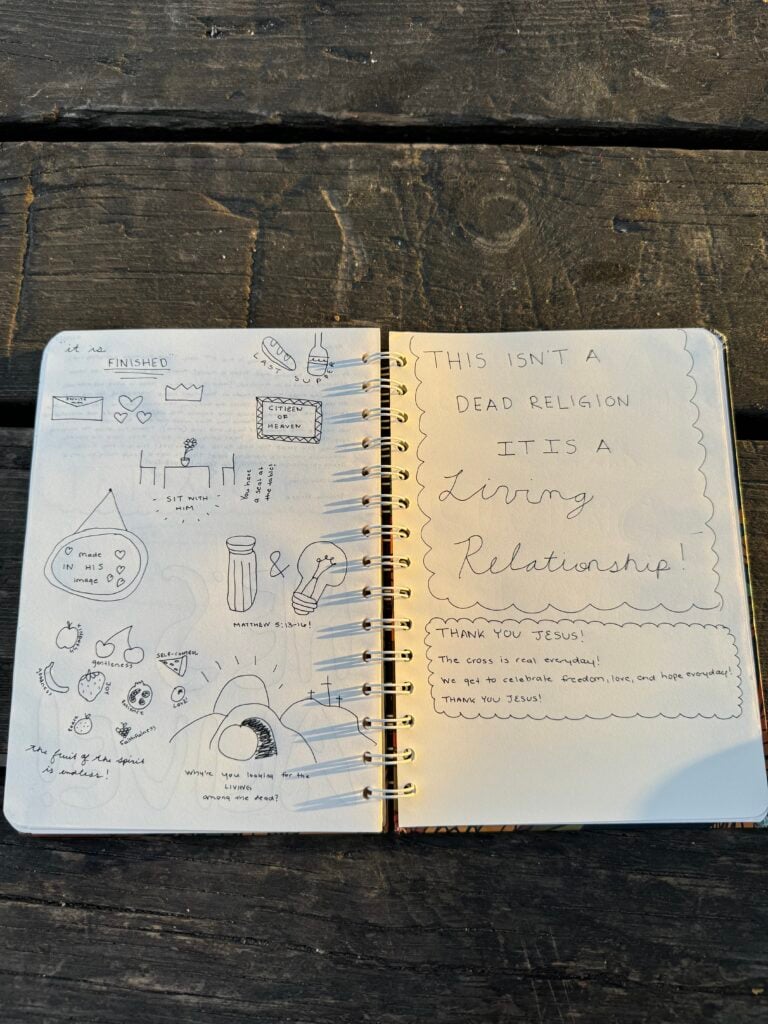 "it is
FINISHED"
LAST SUPPER
CITIZEN
OF
HEAVEN
SIT WITH
HIM
You have
a seat at
the table!
made
IN HIS
image
&
MATTHEW 5:13-16!
gentleness
SELF-CONTROL
JOY
LOVE
PEACE
FAITHFULNESS
the fruit of the spirit
is endless!
Why're you looking for the
LIVING
among the dead?
THIS ISN'T A
DEAD RELIGION
IT IS A
Living
Relationship!
THANK YOU JESUS!
The cross is real everyday!
We get to celebrate freedom, love, and hope everyday!
THANK YOU JESUS!